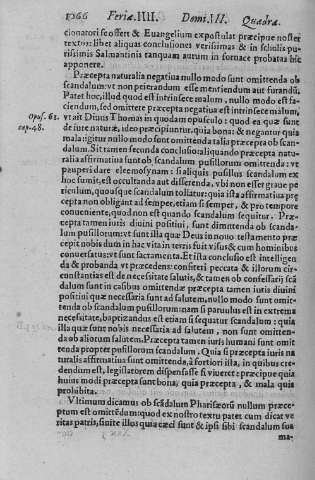 1266 Feria.IIII. Domi.III. Quadra.
cionatori se offert & Euangelium expostulat præcipue noster
textus: libet aliquas conclusiones verissimas & in scholis pu-
rissimis Salmantinis tanquam aurum in fornace probatas hic
apponere.
Præcepta naturalia negatiua nullo modo sunt omittenda ob
scandalum: vt non peierandum esse mentiendum aut furandũ.
Patet hoc, illud quod est intrinsece malum, nullo modo est fa-
ciendum, sed omittere præcepta negatiua est intrinsece malum,
Opus. 62. vt ait Diuus Thomas in quodam opusculo: quod ea quæ sunt
cap. 48. de iure naturæ, ideo præcipiuntur, quia bona: & negantur quia
mala: igitur nullo modo sunt omittenda talia præcepta ob scan-
dalum. Sit tamen secunda conclusio aliquando præcepta natu-
ralia affirmatiua sunt ob scandalum pusillorum omittenda: vt
pauperi dare eleemosynam: si aliquis pusillus scandalum ex
hoc sumit, est occultanda aut differenda, vbi non esset graue pe
riculum, quousque scandalum tollatur: quia ista affirmatiua præ
cepta non obligant ad semper, etiam si semper, & pro tempore
conueniente, quod non est quando scandalum sequitur. Præ-
cepta tamen iuris diuini positiui, sunt dimittenda ob scanda-
lum pusillorum: vt sunt illa quæ Deus in nouo testamento præ
cepit nobis dum in hac vita in terris fuit visus & cum hominibus
conuersatus: vt sunt sacramenta. Et ista conclusio est intelligen
da & probanda vt præcedens: consistit peccata & illorum cir-
cunstantias est de necessitate salutis, & tamen ob confessarij scã
dalum sunt in casibus omittendæ præcepta tamen iuris diuini
positiui quæ necessaria sunt ad salutem, nullo modo sunt omit-
tenda ob scandalum pusillorum: nam si paruulus est in extrema
necessitate, baptizandus est etiam si sequatur scandalum: quia
illa quæ sunt nobis necessaria ad salutem, non sunt omitten-
da ob aliorum salutem. Præcepta tamen iuris humani sunt omit
tenda propter pusillorum scandalum. Quia si præcepta iuris na
turalis affirmatiua sunt omittenda, à fortiori ista, in quibus cre-
dendum est, legislatorem dispensasse si viueret: præcipue quia
huius modi præcepta sunt bona, quia præcepta, & mala quia
prohibita.
Vltimum dicamus ob scãdalum Pharisæorũ nullum præce-
ptum est omittẽdum: quod ex nostro textu patet cum dicat ve
ritas patris, sinite illos quia cæci sunt & ipsi sibi scandalum sua
ma-